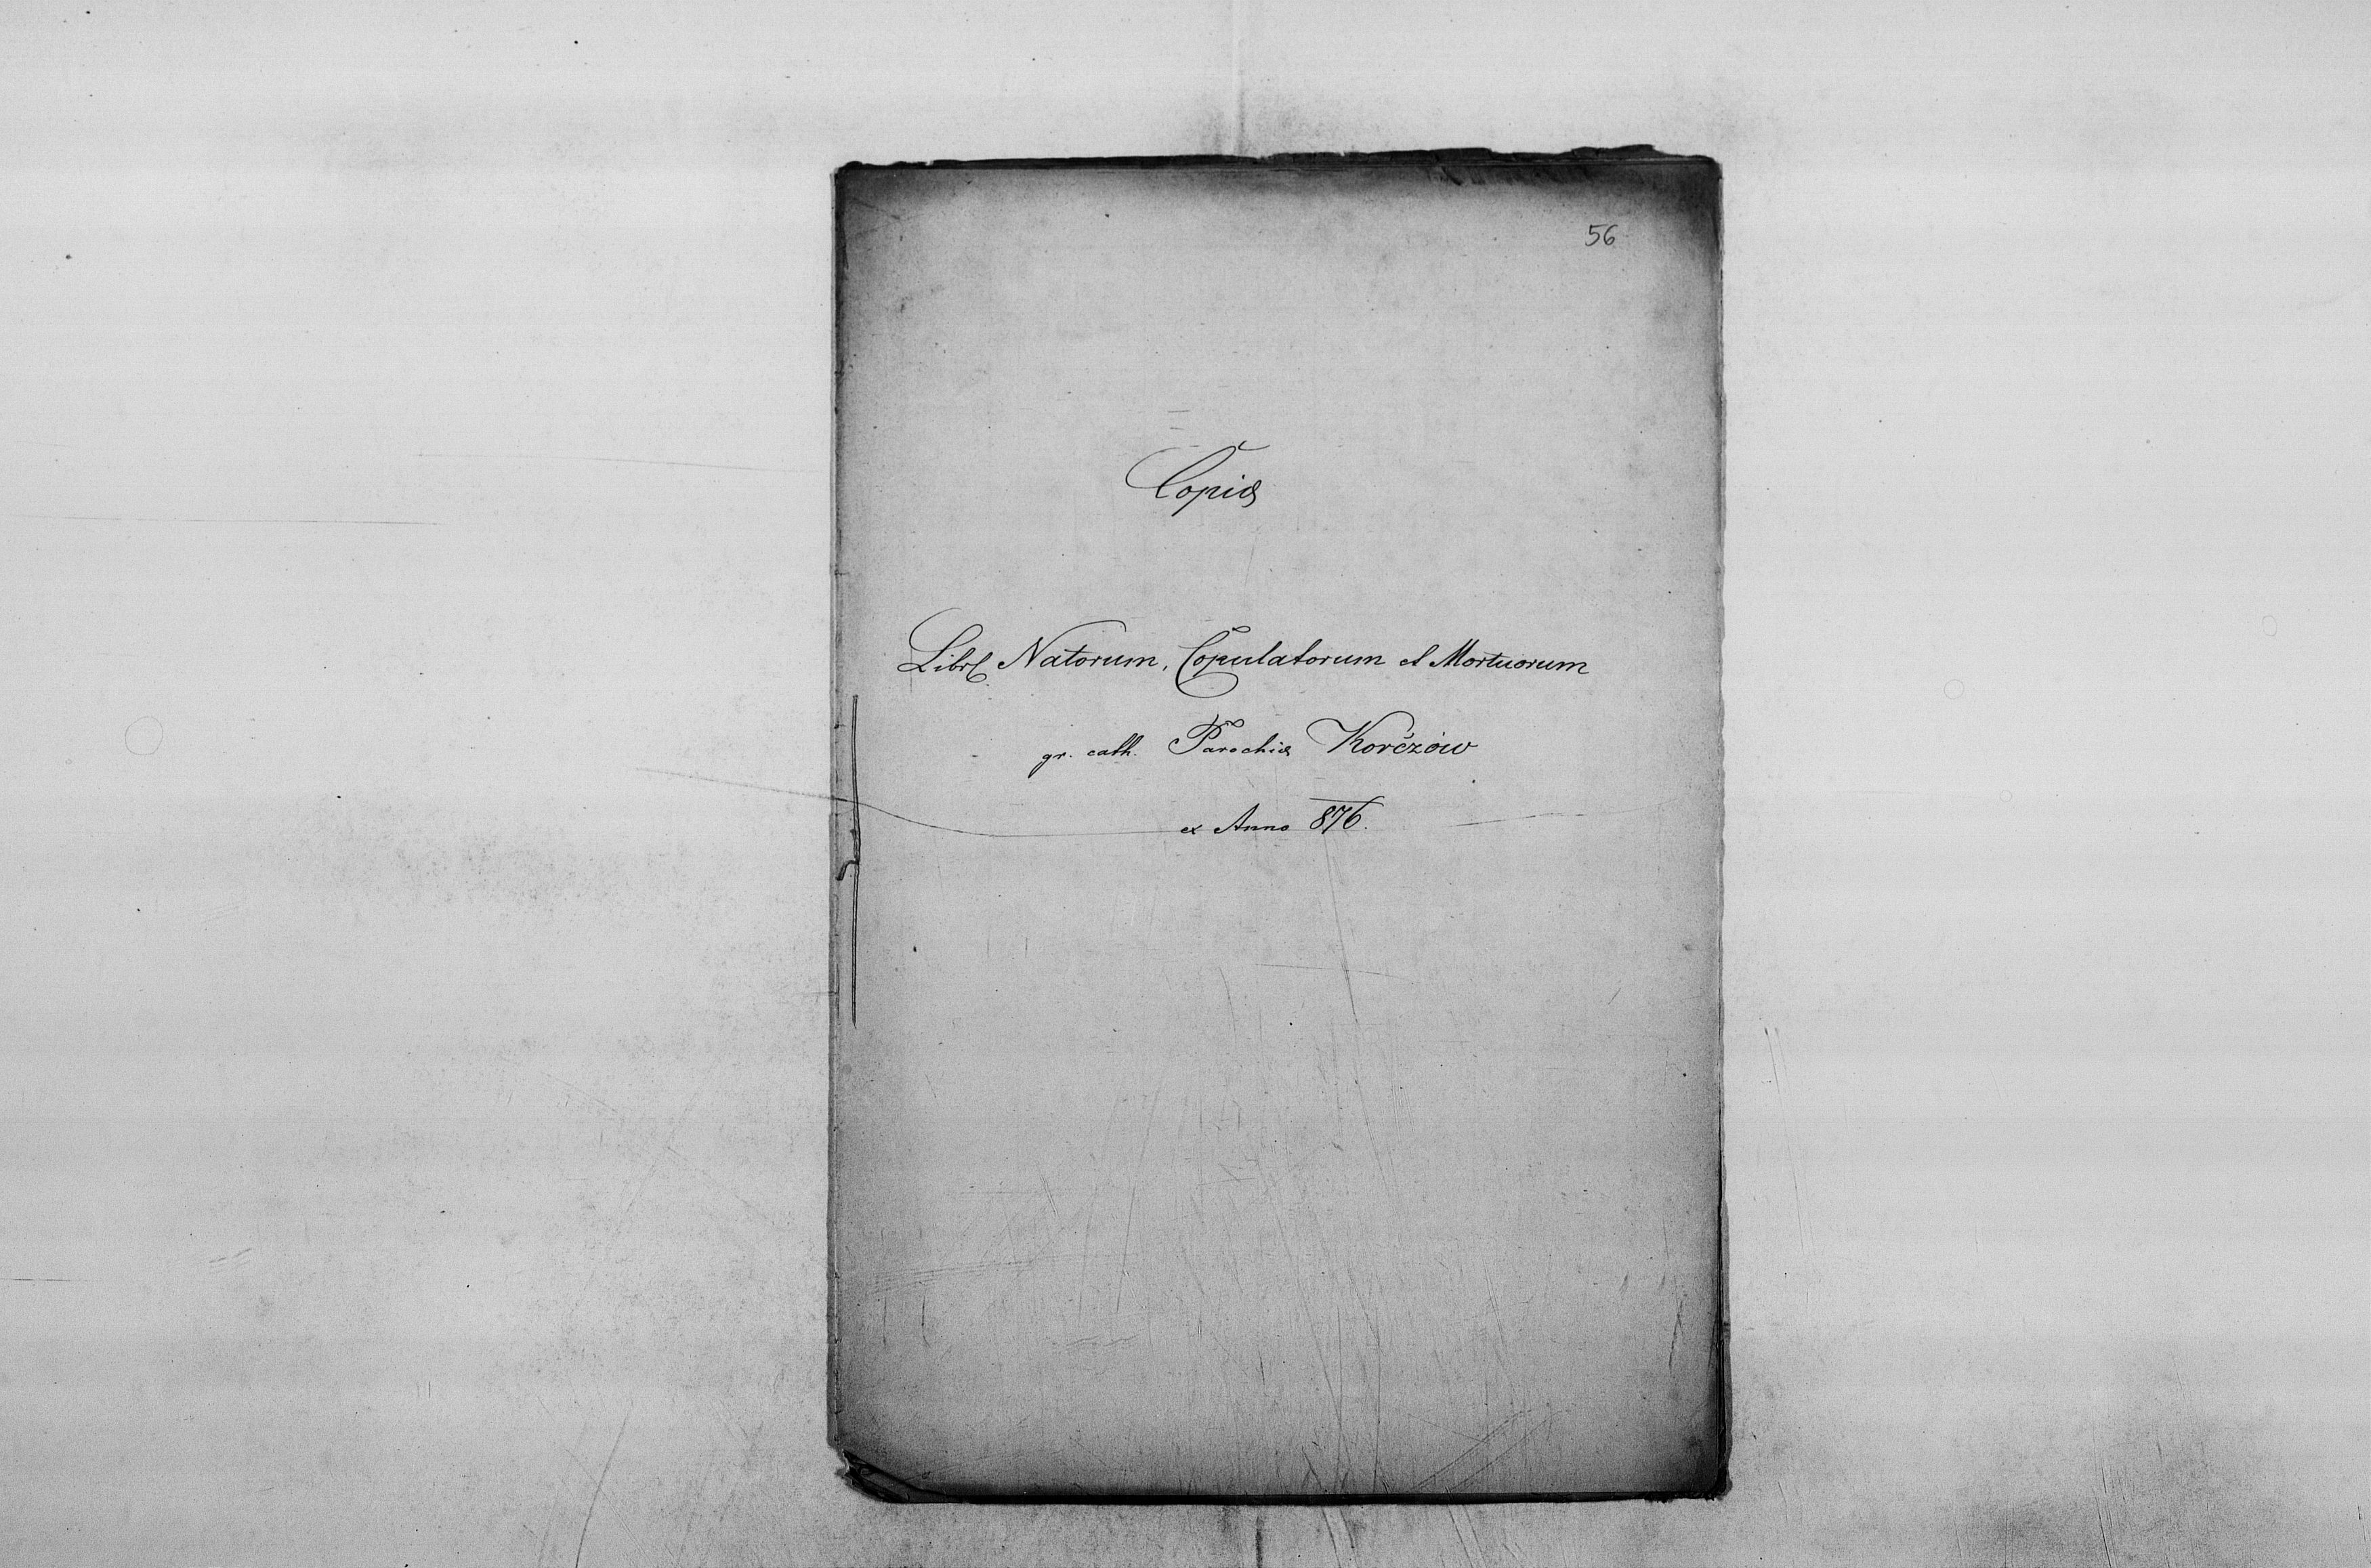 56
Copia
Libri Natorum, Copulatorum et Mortuorum
gr. cath. Parochiæ Korčzów
ex Anno 876.